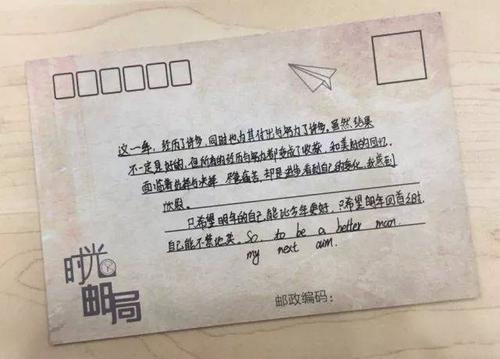 这一年,经历了许多,同时也与其付出与努力了许多。虽然结果
不一定是好的,但所有的经历与努力都变成了收获,和美好的回忆。
面临着选择与决择 尽管痛苦,却是进步看到自己的变化,我感到
欣慰。
只希望明年的自己,能比今年更好,只希望明年回首之时,
自己能不禁地笑。So, to be a better man.
my next aim.
时光
邮局
邮政编码: